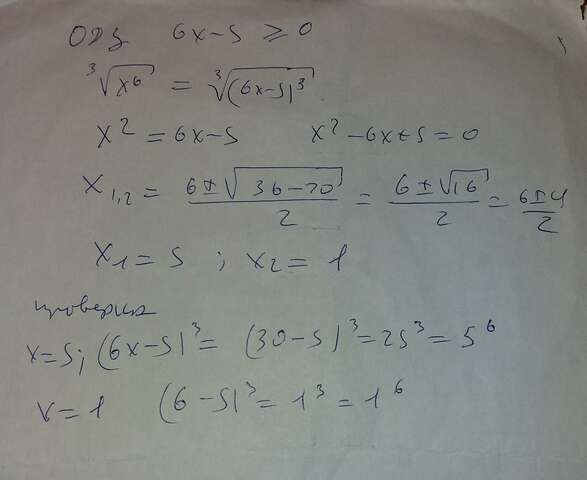 ОДЗ 6x-5 ≥ 0
∛x⁶ = ∛(6x-5)³
x² = 6x-5 x²-6x+5=0
x₁,₂ = (6±√(36-20))/2 = (6±√16)/2 = (6±4)/2
x₁=5 ; x₂=1
проверка
x=5; (6x-5)³= (30-5)³=25³=5⁶
x=1 (6-5)³=1³=1⁶